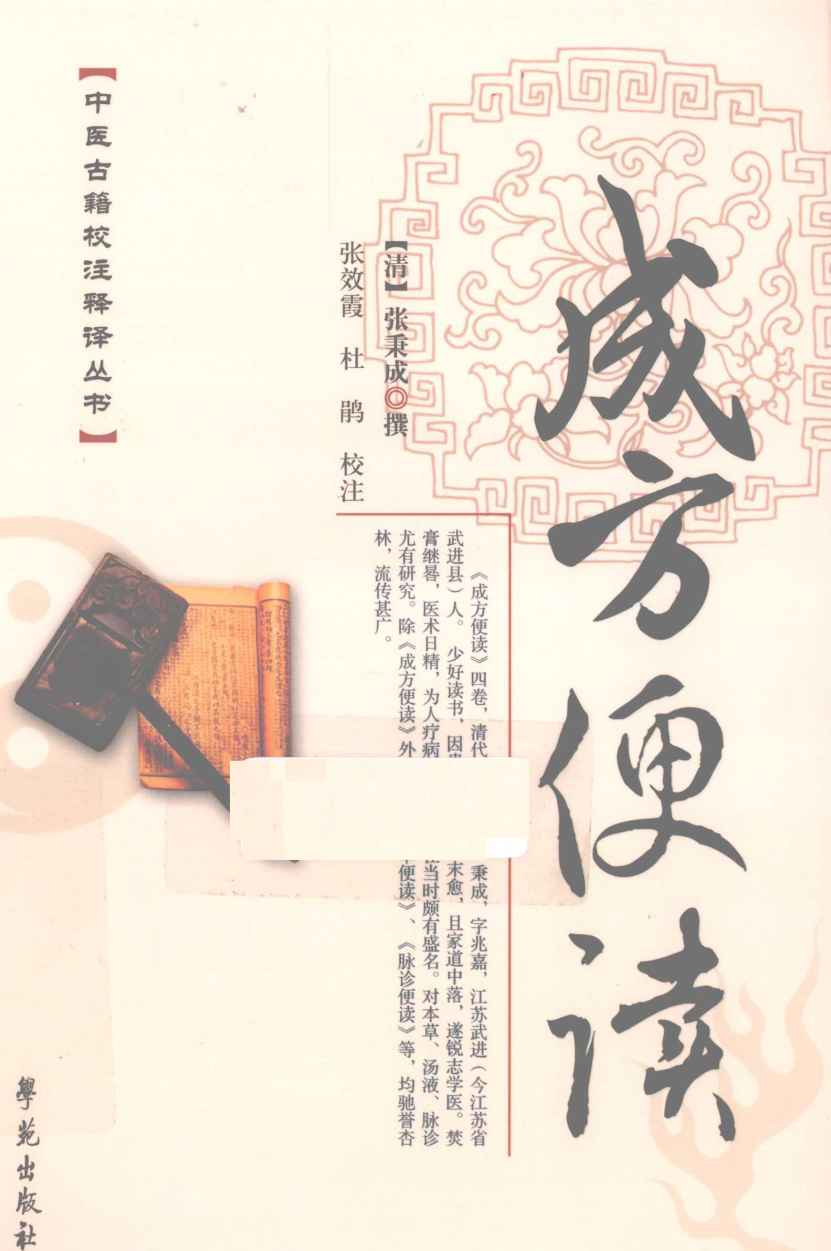 成方便读
【清】张秉成◎撰
张效霞 杜鹃 校注
《成方便读》四卷，清代 秉成，字兆嘉，江苏武进（今江苏省
武进县）人。少好读书，因 未愈，且家道中落，遂锐志学医。焚
膏继晷，医术日精，为人疗病 当时颇有盛名。对本草、汤液、脉诊
尤有研究。除《成方便读》外 便读》、《脉诊便读》等，均驰誉杏
林，流传甚广。
【中医古籍校注释译丛书】
學苑出版社